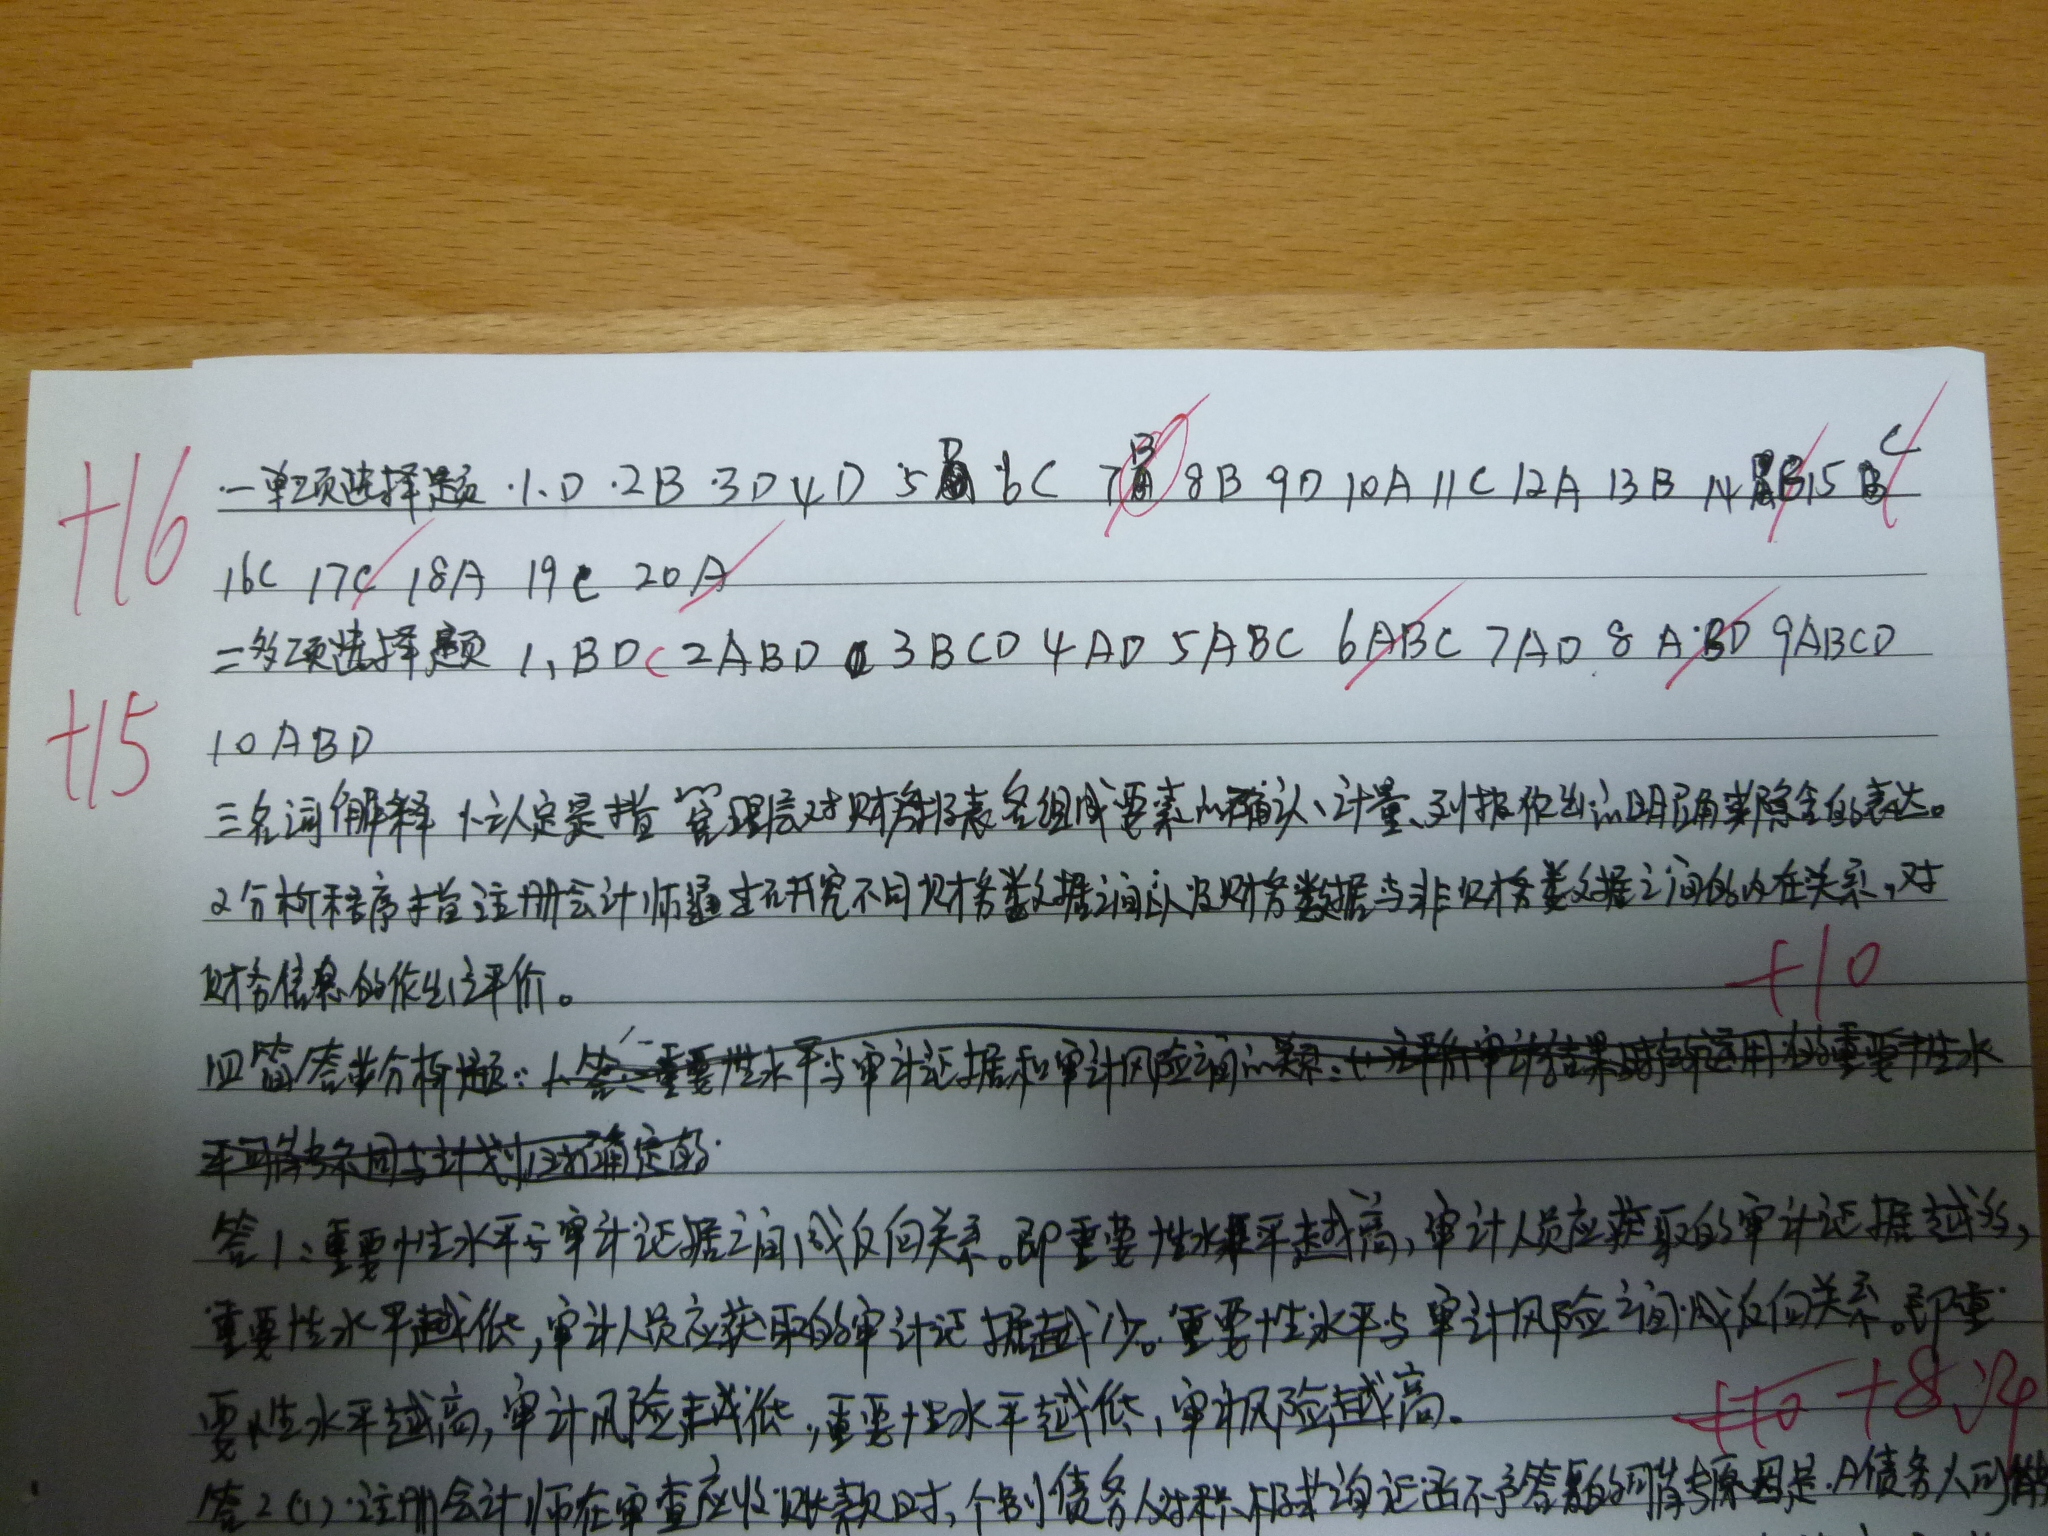 一单项选择题 1.D 2B 3D 4D 5B 6C 7B 8B 9D 10A 11C 12A 13B 14B 15C
+16
16C 17C 18A 19C 20A
二多项选择题 1、BDC 2ABD 3BCD 4AD 5ABC 6ABC 7AD 8ABD 9ABCD
+15
10ABD
三名词解释 1、认定是指管理层对财务报表各组成要素的确认、计量、列报作出的明确或隐含的表达。
2分析程序指注册会计师通过研究不同财务数据之间以及财务数据与非财务数据之间的内在关系,对
财务信息的作出评价。
+10
四简答与分析题: 1、答:重要性水平与审计证据和审计风险之间的关系:(1)评价审计结果时所运用的重要性水
平可能不同与计划时确定的
答1:重要性水平与审计证据之间成反向关系。即重要性水平越高,审计人员应获取的审计证据越多,
重要性水平越低,审计人员应获取的审计证据越少。重要性水平与审计风险之间成反向关系。即重
要性水平越高,审计风险越低,重要性水平越低,审计风险越高。
+10 +8
答2(1)注册会计师在审查应收账款时,个别债务人对积极式询证函不予答复的可能原因是:A债务人可能